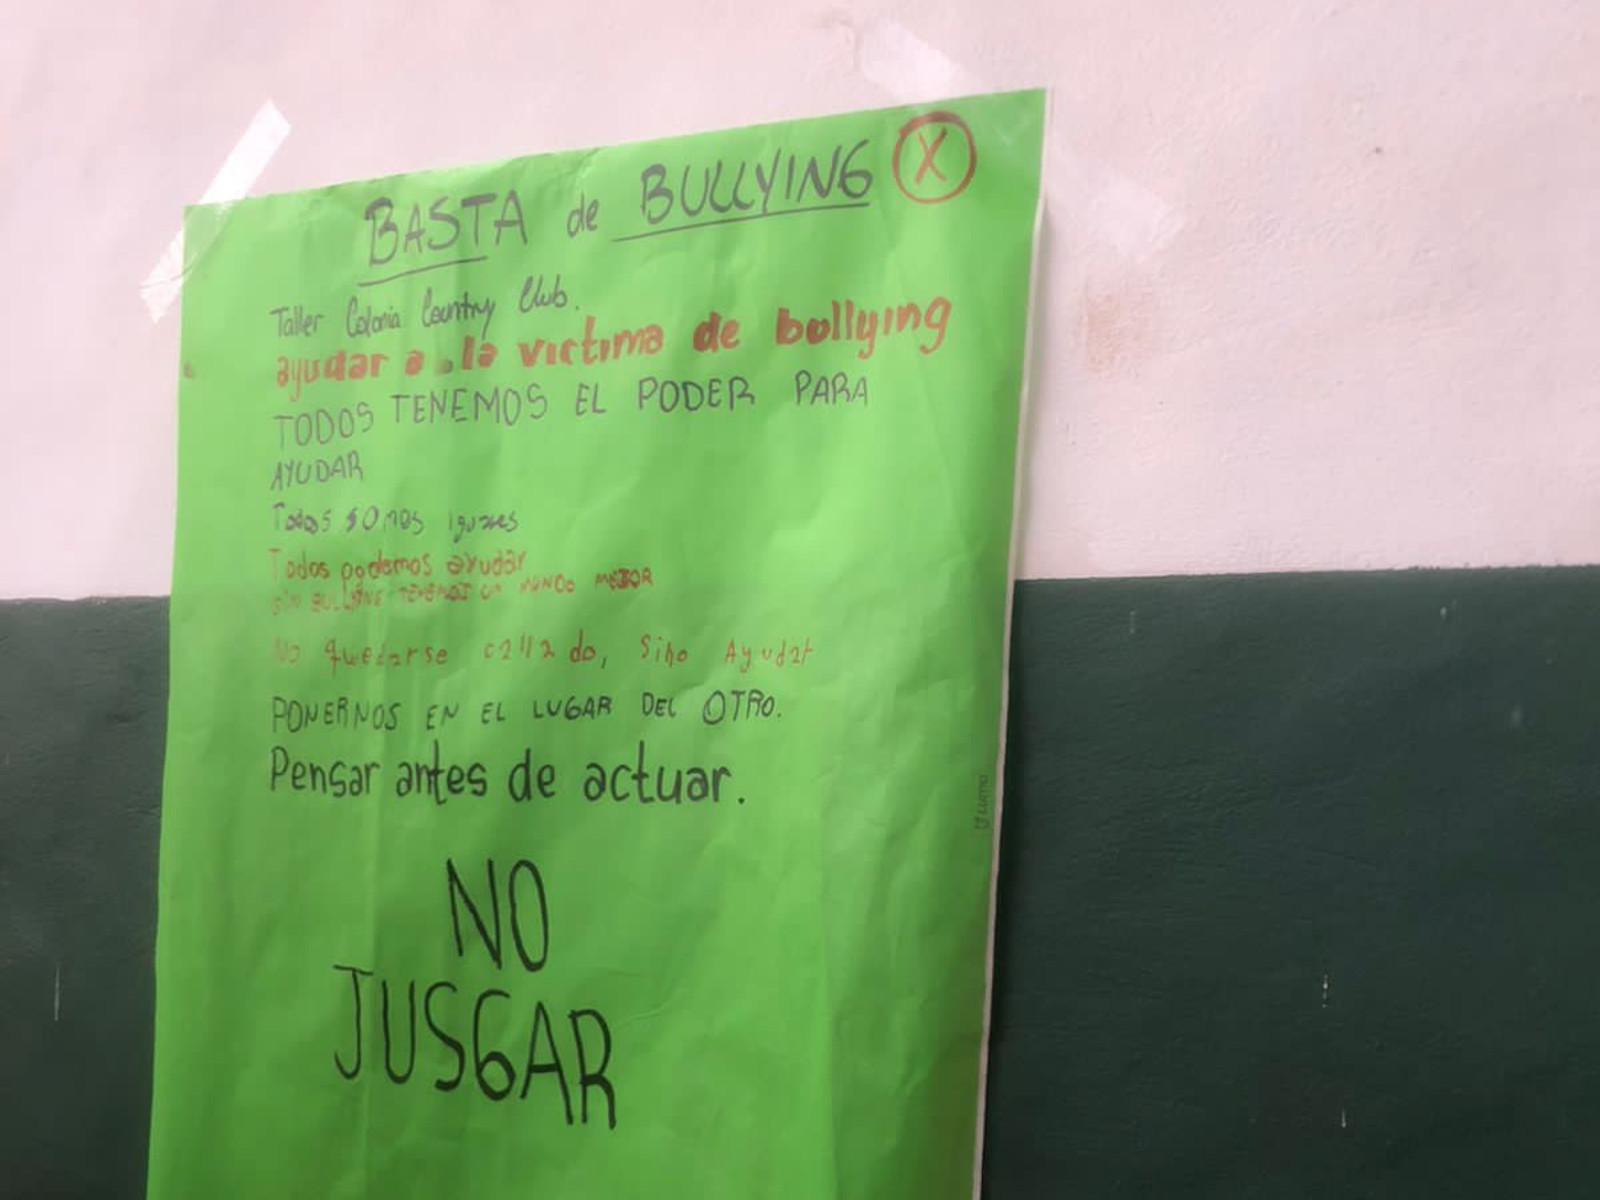 BASTA de BULLYING X
Taller Colonia Country Club.
ayudar a la victima de bullying
TODOS TENEMOS EL PODER PARA
AYUDAR
Todos somos iguales
Todos podemos ayudar
SIN BULLYING TENEMOS UN MUNDO MEJOR
No quedarse callado, Sino Ayudar
PONERNOS EN EL LUGAR DEL OTRO.
Pensar antes de actuar.
NO
JUSGAR